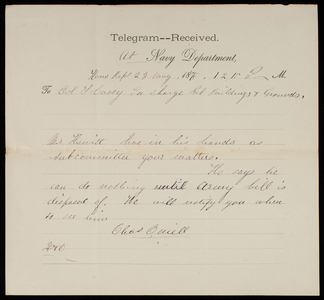 Telegram--Received.
At Navy Department,
Aug 187 1 2 15 P M.
To Col T Casey In charge Pub buildings & Grounds.
Mr Hewitt has in his hands as
subcommittee your matters.
He says he
can do nothing until Army bill is
disposed of. He will notify you when
to see him
Chas O'neill